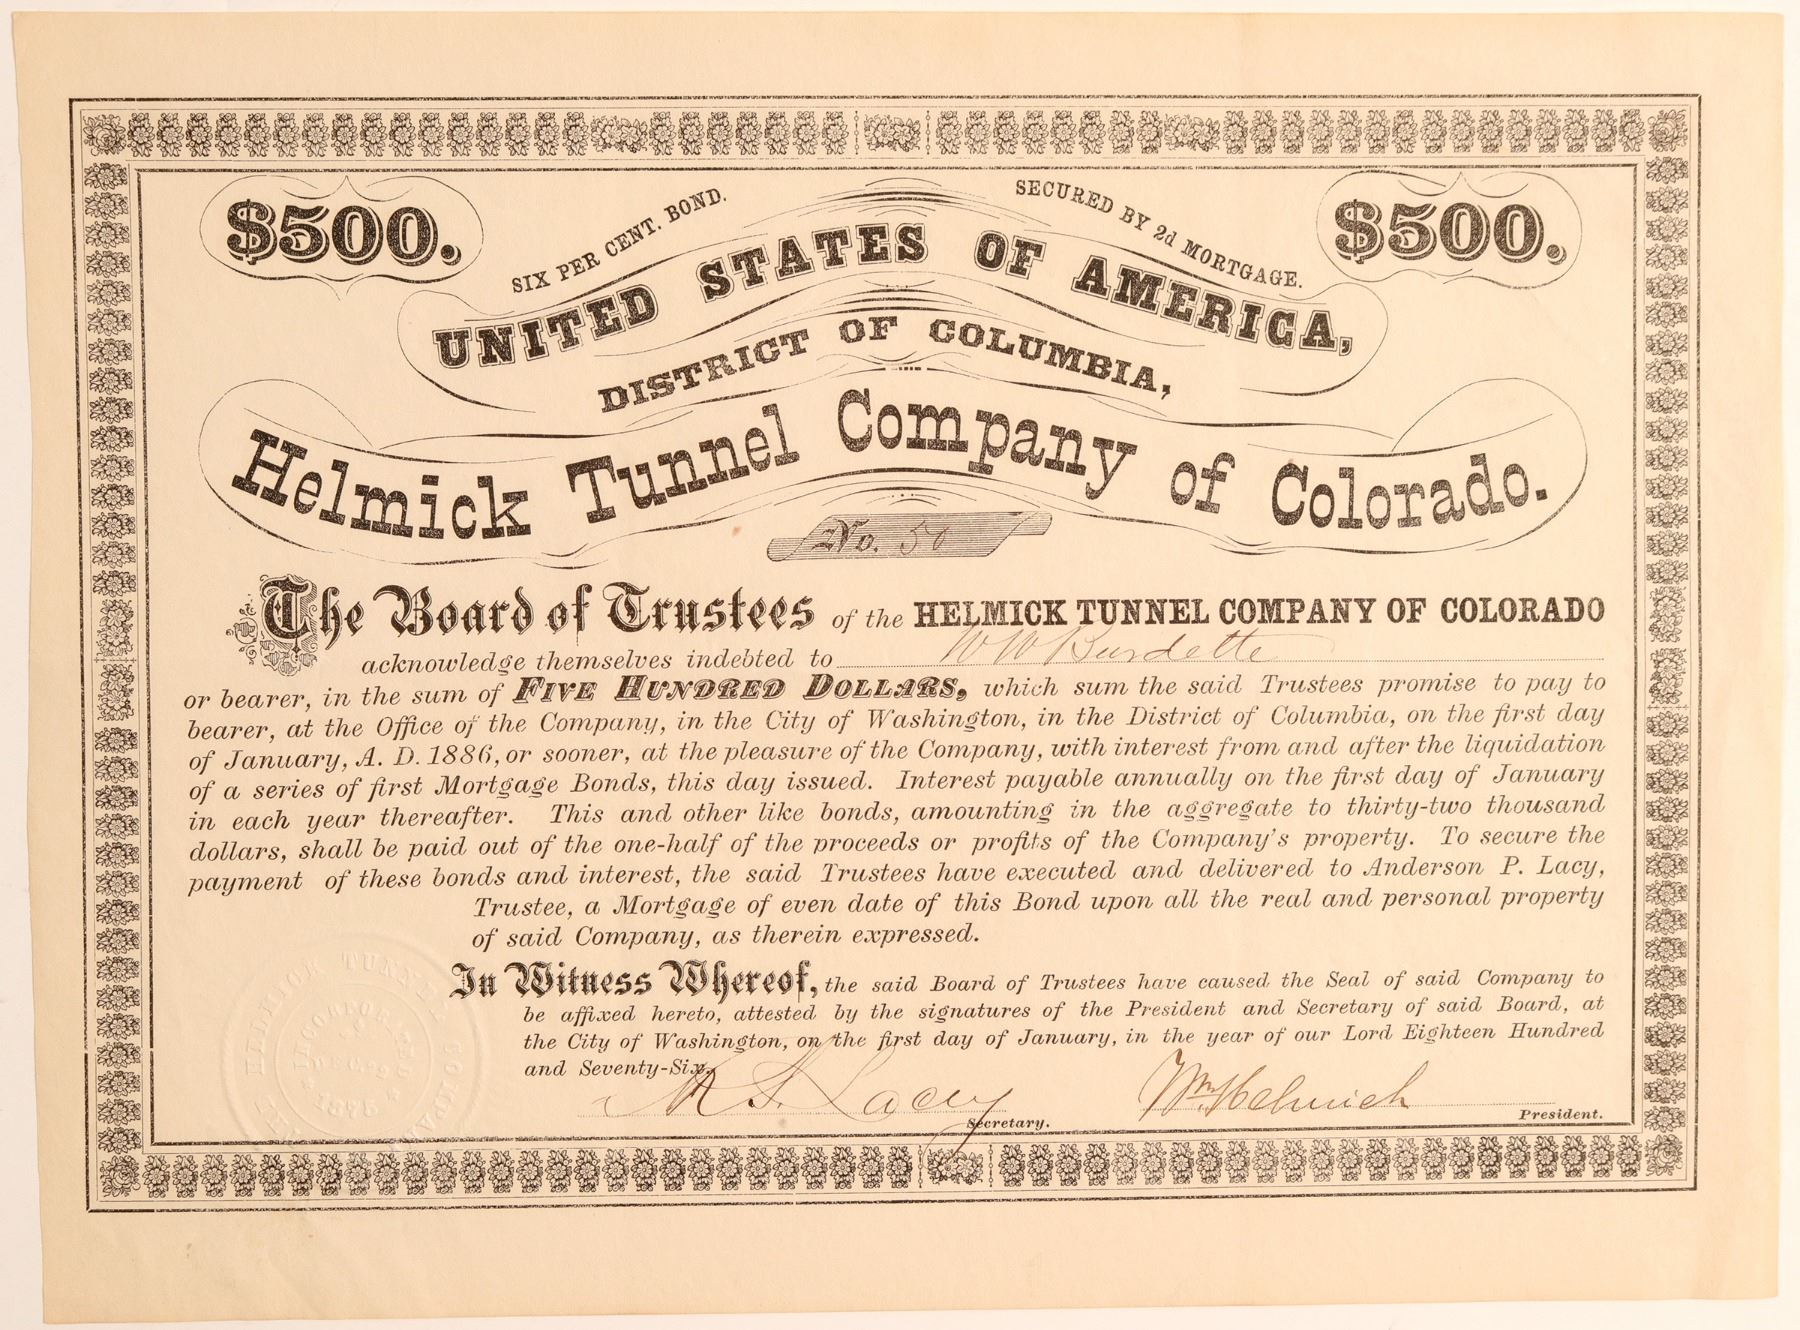 $500.
SIX PER CENT. BOND.
SECURED BY 2d MORTGAGE.
$500.
UNITED STATES OF AMERICA,
DISTRICT OF COLUMBIA,
Helmick Tunnel Company of Colorado.
No. 50
The Board of Trustees of the HELMICK TUNNEL COMPANY OF COLORADO
acknowledge themselves indebted to W W Burdette
or bearer, in the sum of FIVE HUNDRED DOLLARS, which sum the said Trustees promise to pay to
bearer, at the Office of the Company, in the City of Washington, in the District of Columbia, on the first day
of January, A. D. 1886, or sooner, at the pleasure of the Company, with interest from and after the liquidation
of a series of first Mortgage Bonds, this day issued. Interest payable annually on the first day of January
in each year thereafter. This and other like bonds, amounting in the aggregate to thirty-two thousand
dollars, shall be paid out of the one-half of the proceeds or profits of the Company's property. To secure the
payment of these bonds and interest, the said Trustees have executed and delivered to Anderson P. Lacy,
Trustee, a Mortgage of even date of this Bond upon all the real and personal property
of said Company, as therein expressed.
In Witness Whereof, the said Board of Trustees have caused the Seal of said Company to
be affixed hereto, attested by the signatures of the President and Secretary of said Board, at
the City of Washington, on the first day of January, in the year of our Lord Eighteen Hundred
and Seventy-Six.
R. S. Lacey
Secretary.
Wm Helmick
President.
1875